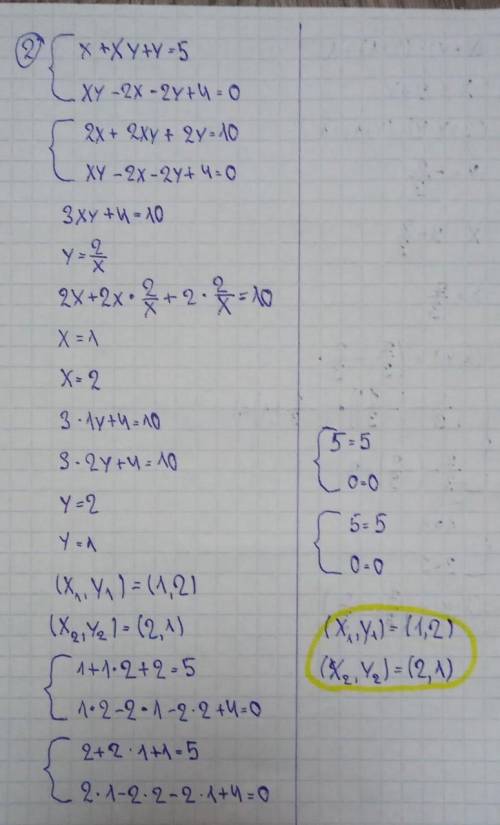 2) { x + xy + y = 5
xy - 2x - 2y + 4 = 0
{ 2x + 2xy + 2y = 10
xy - 2x - 2y + 4 = 0
3xy + 4 = 10
y = 2/x
2x + 2x · 2/x + 2 · 2/x = 10
x = 1
x = 2
3 · 1y + 4 = 10
3 · 2y + 4 = 10
y = 2
y = 1
(x₁, y₁) = (1,2)
(x₂, y₂) = (2,1)
{ 1 + 1·2 + 2 = 5
1·2 - 2·1 - 2·2 + 4 = 0
{ 2 + 2·1 + 1 = 5
2·1 - 2·2 - 2·1 + 4 = 0
{ 5 = 5
0 = 0
{ 5 = 5
0 = 0
(x₁, y₁) = (1,2)
(x₂, y₂) = (2,1)